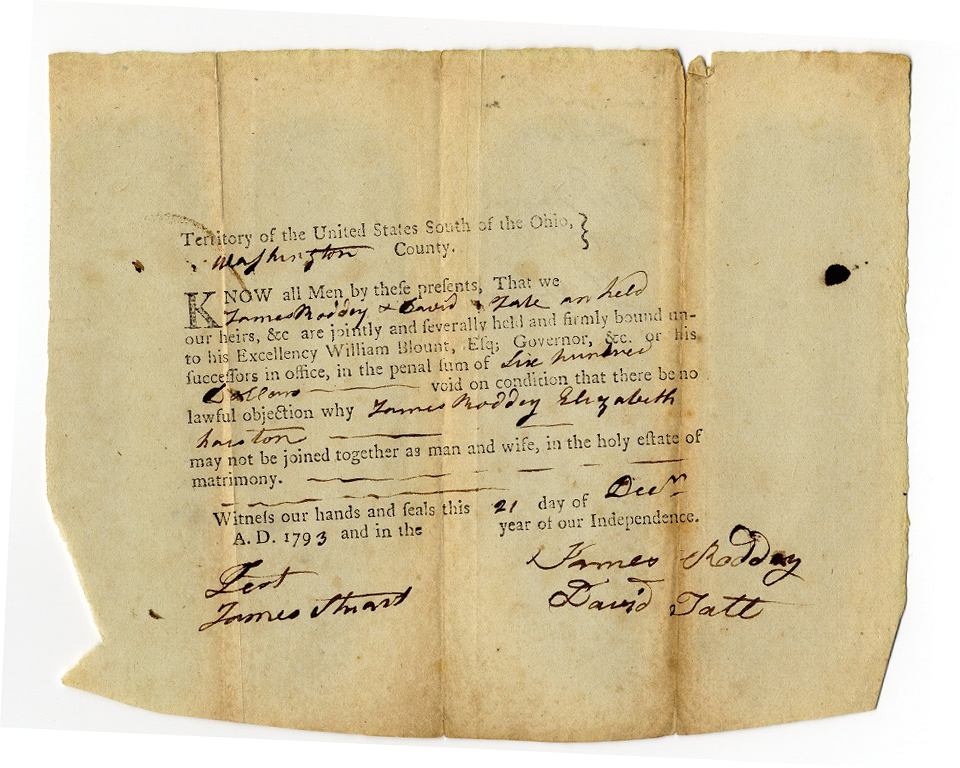 Territory of the United States South of the Ohio, }
Washington County.
KNOW all Men by these presents, That we
James Roddey & David Tate are held
our heirs, &c are jointly and severally held and firmly bound un-
to his Excellency William Blount, Esq; Governor, &c. or his
successors in office, in the penal sum of Six hundred
Dollars void on condition that there be no
lawful objection why James Roddey Elizabeth
hariton
may not be joined together as man and wife, in the holy estate of
matrimony.
Witness our hands and seals this 21 day of Decr
A. D. 1793 and in the year of our Independence.
Test James Roddey
James Stuart David Tatt